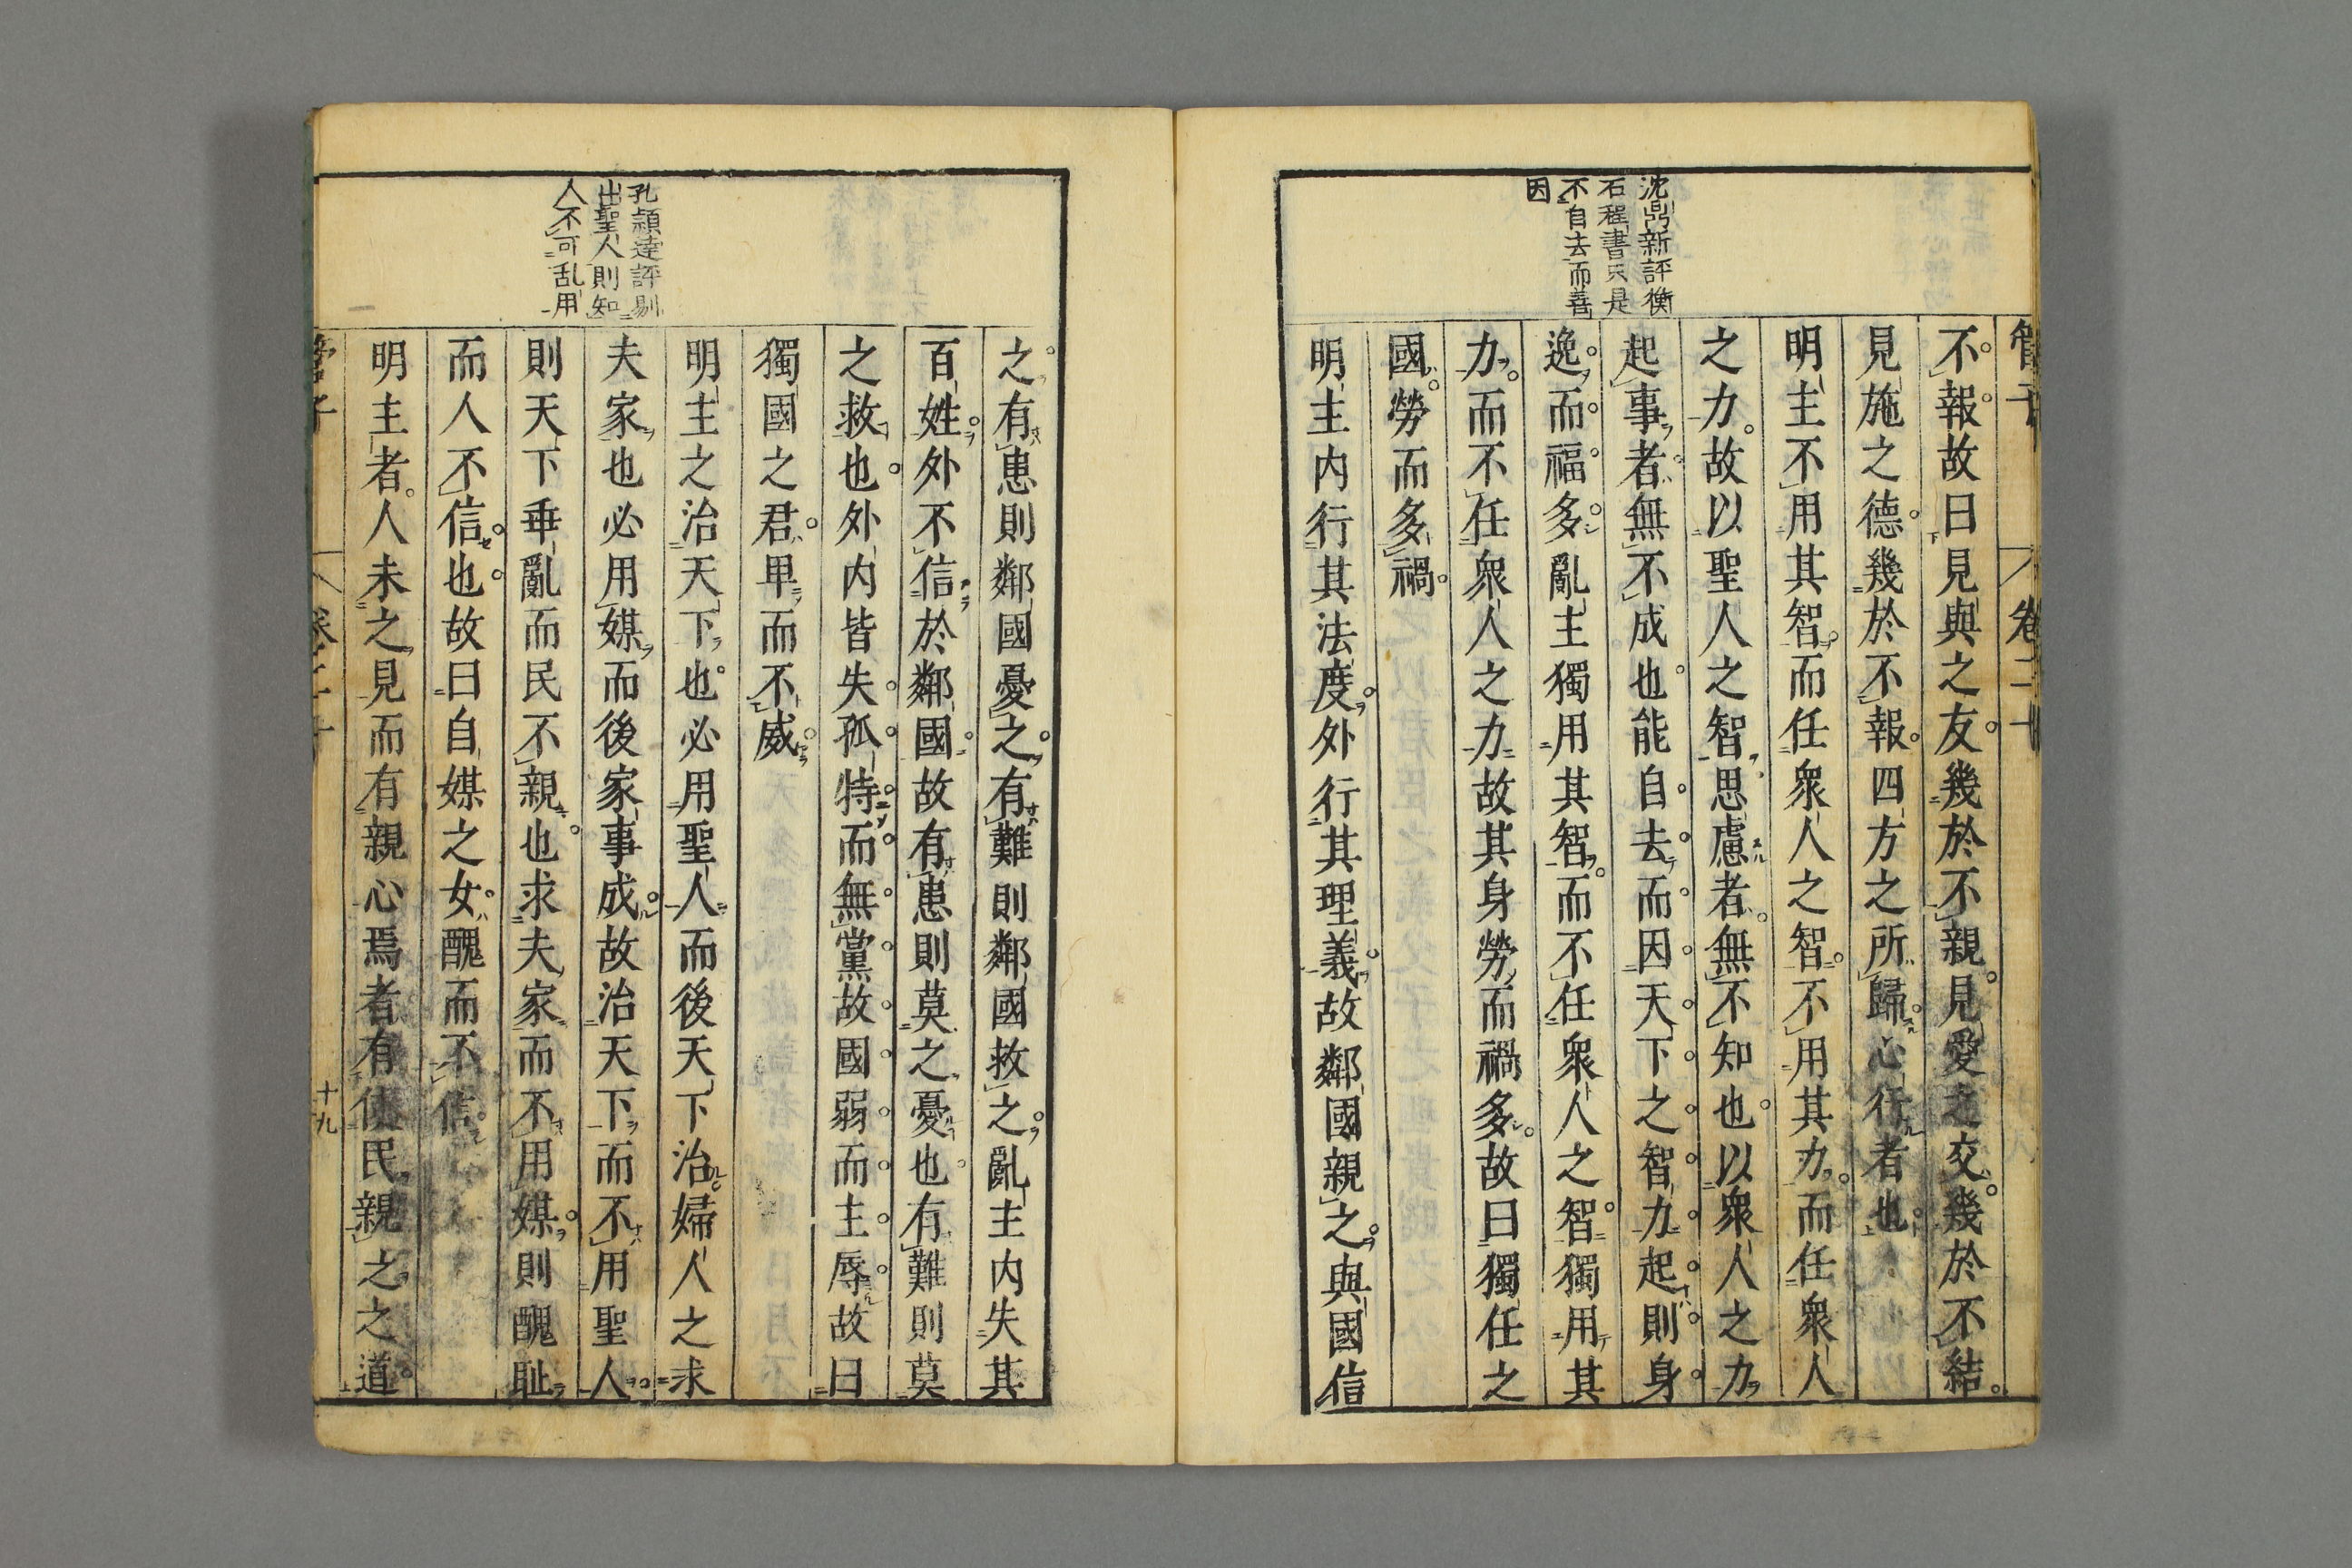 管子
卷二十
不報故曰見與之友幾於不親見愛之交幾於不結
見施之德幾於不報四方之所歸心行者也
明主不用其智而任衆人之智不用其力而任衆人
之力故以聖人之智思慮者無不知也以衆人之力
起事者無不成也能自去而因天下之智力起則身
逸而福多亂主獨用其智而不任衆人之智獨用其
力而不任衆人之力故其身勞而禍多故曰獨任之
國勞而多禍
明主內行其法度外行其理義故鄰國親之與國信
沈鼎新評衡
石程書只是
不自去而善
因
之有患則鄰國憂之有難則鄰國救之亂主內失其
百姓外不信於鄰國故有患則莫之憂也有難則莫
之救也外內皆失孤特而無黨故國弱而主辱故曰
獨國之君卑而不威
明主之治天下也必用聖人而後天下治婦人之求
夫家也必用媒而後家事成故治天下而不用聖人
則天下乖亂而民不親也求夫家而不用媒則醜耻
而人不信也故曰自媒之女醜而不信
明主者人未之見而有親心焉者有使民親之之道
孔頴達評剔
出聖人則知
人不可乱用
管子
卷二十
十九